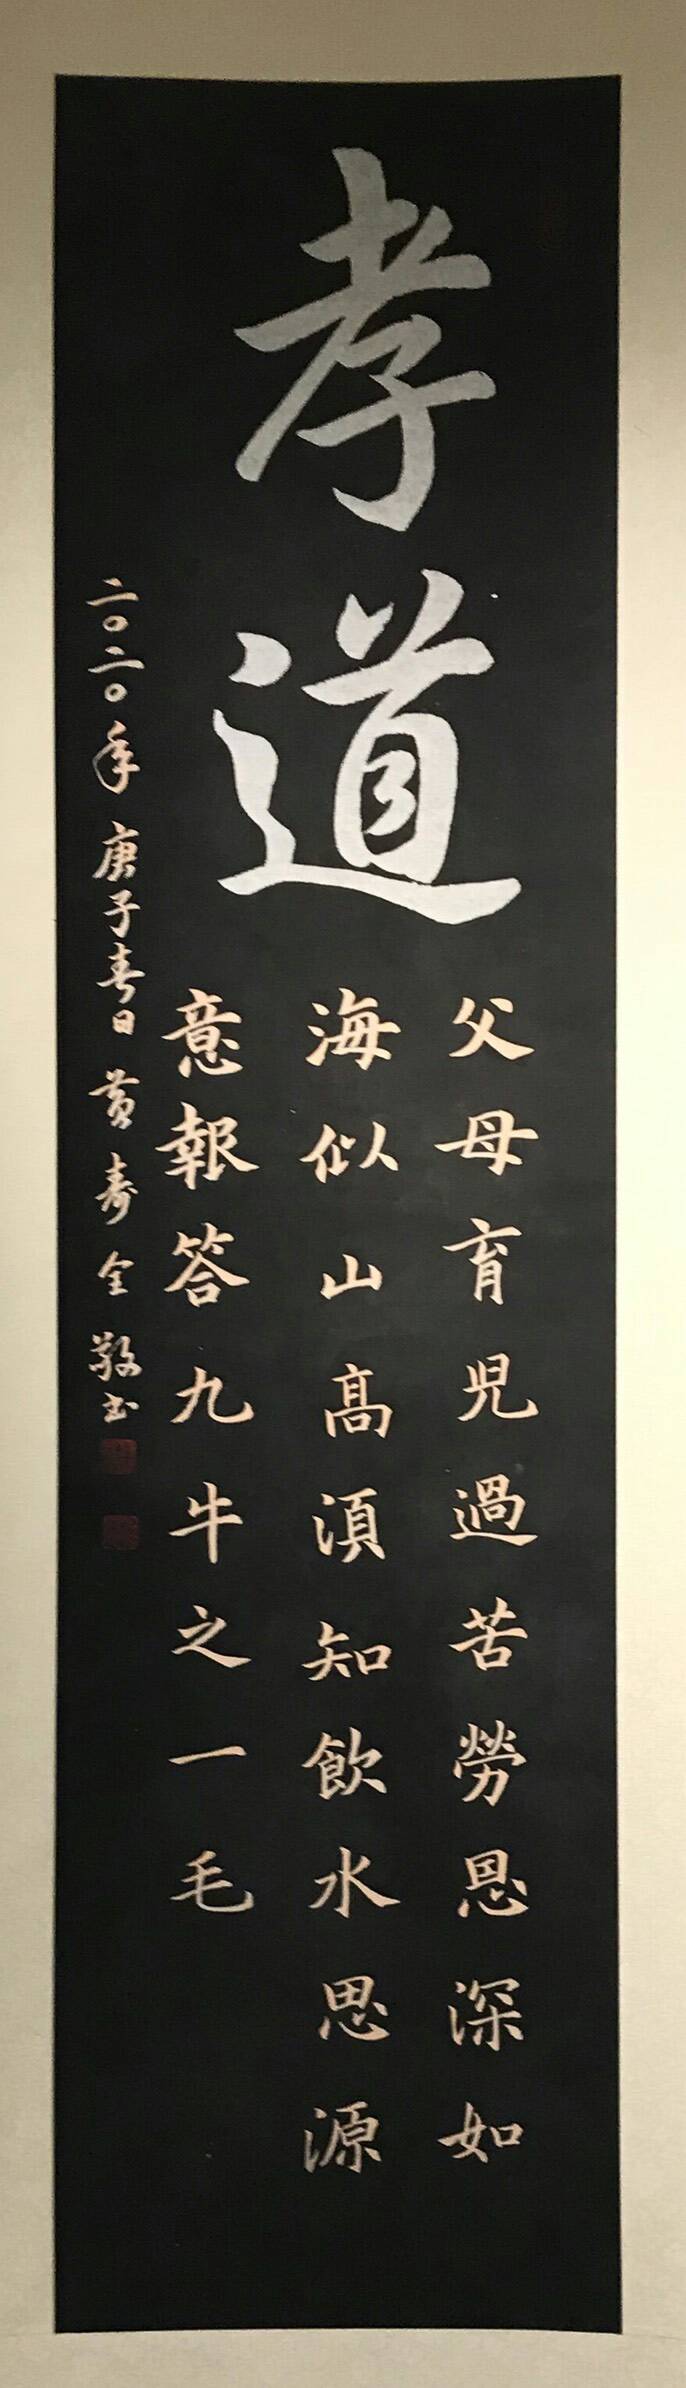 孝道
父母育児過苦勞恩深如
海似山高須知飲水思源
意報答九牛之一毛
二〇二〇年庚子春日黃壽全敬书